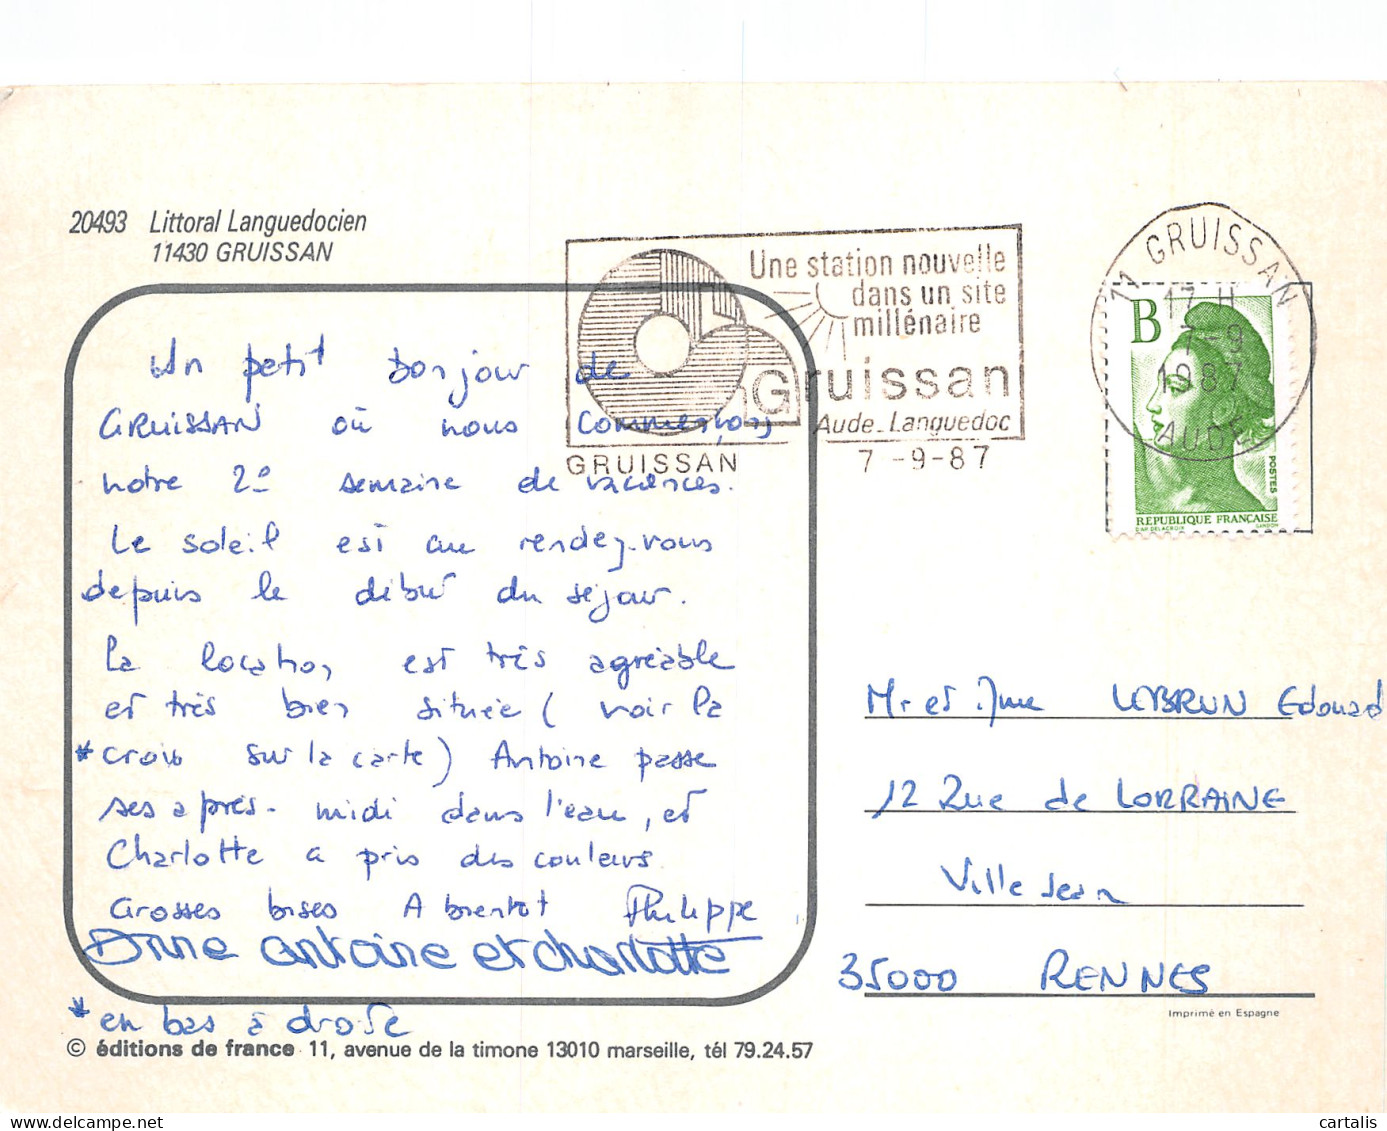 20493 Littoral Languedocien
11430 GRUISSAN
Une station nouvelle
dans un site
millénaire
Gruissan
Aude_Languedoc
GRUISSAN
7 -9-87
11 GRUISSAN
17 H
7-9
1987
AUDE
B
POSTES
REPUBLIQUE FRANÇAISE
D'AP. DELACROIX
GANDON
Un petit bonjour de
GRUISSAN où nous commençons
notre 2e semaine de vacances.
Le soleil est au rendez-vous
depuis le début du séjour.
La location est très agréable
et très bien située ( voir la
* croix sur la carte) Antoine passe
ses après-midi dans l'eau, et
Charlotte a pris des couleurs.
Grosses bises A bientot Philippe
Anne antoine et charlotte
* en bas à droite
Mr et Mme LEBRUN Edouard
12 Rue de LORRAINE
Ville Jean
35000 RENNES
Imprimé en Espagne
© éditions de france 11, avenue de la timone 13010 marseille, tél 79.24.57
delcampe.net
cartalis